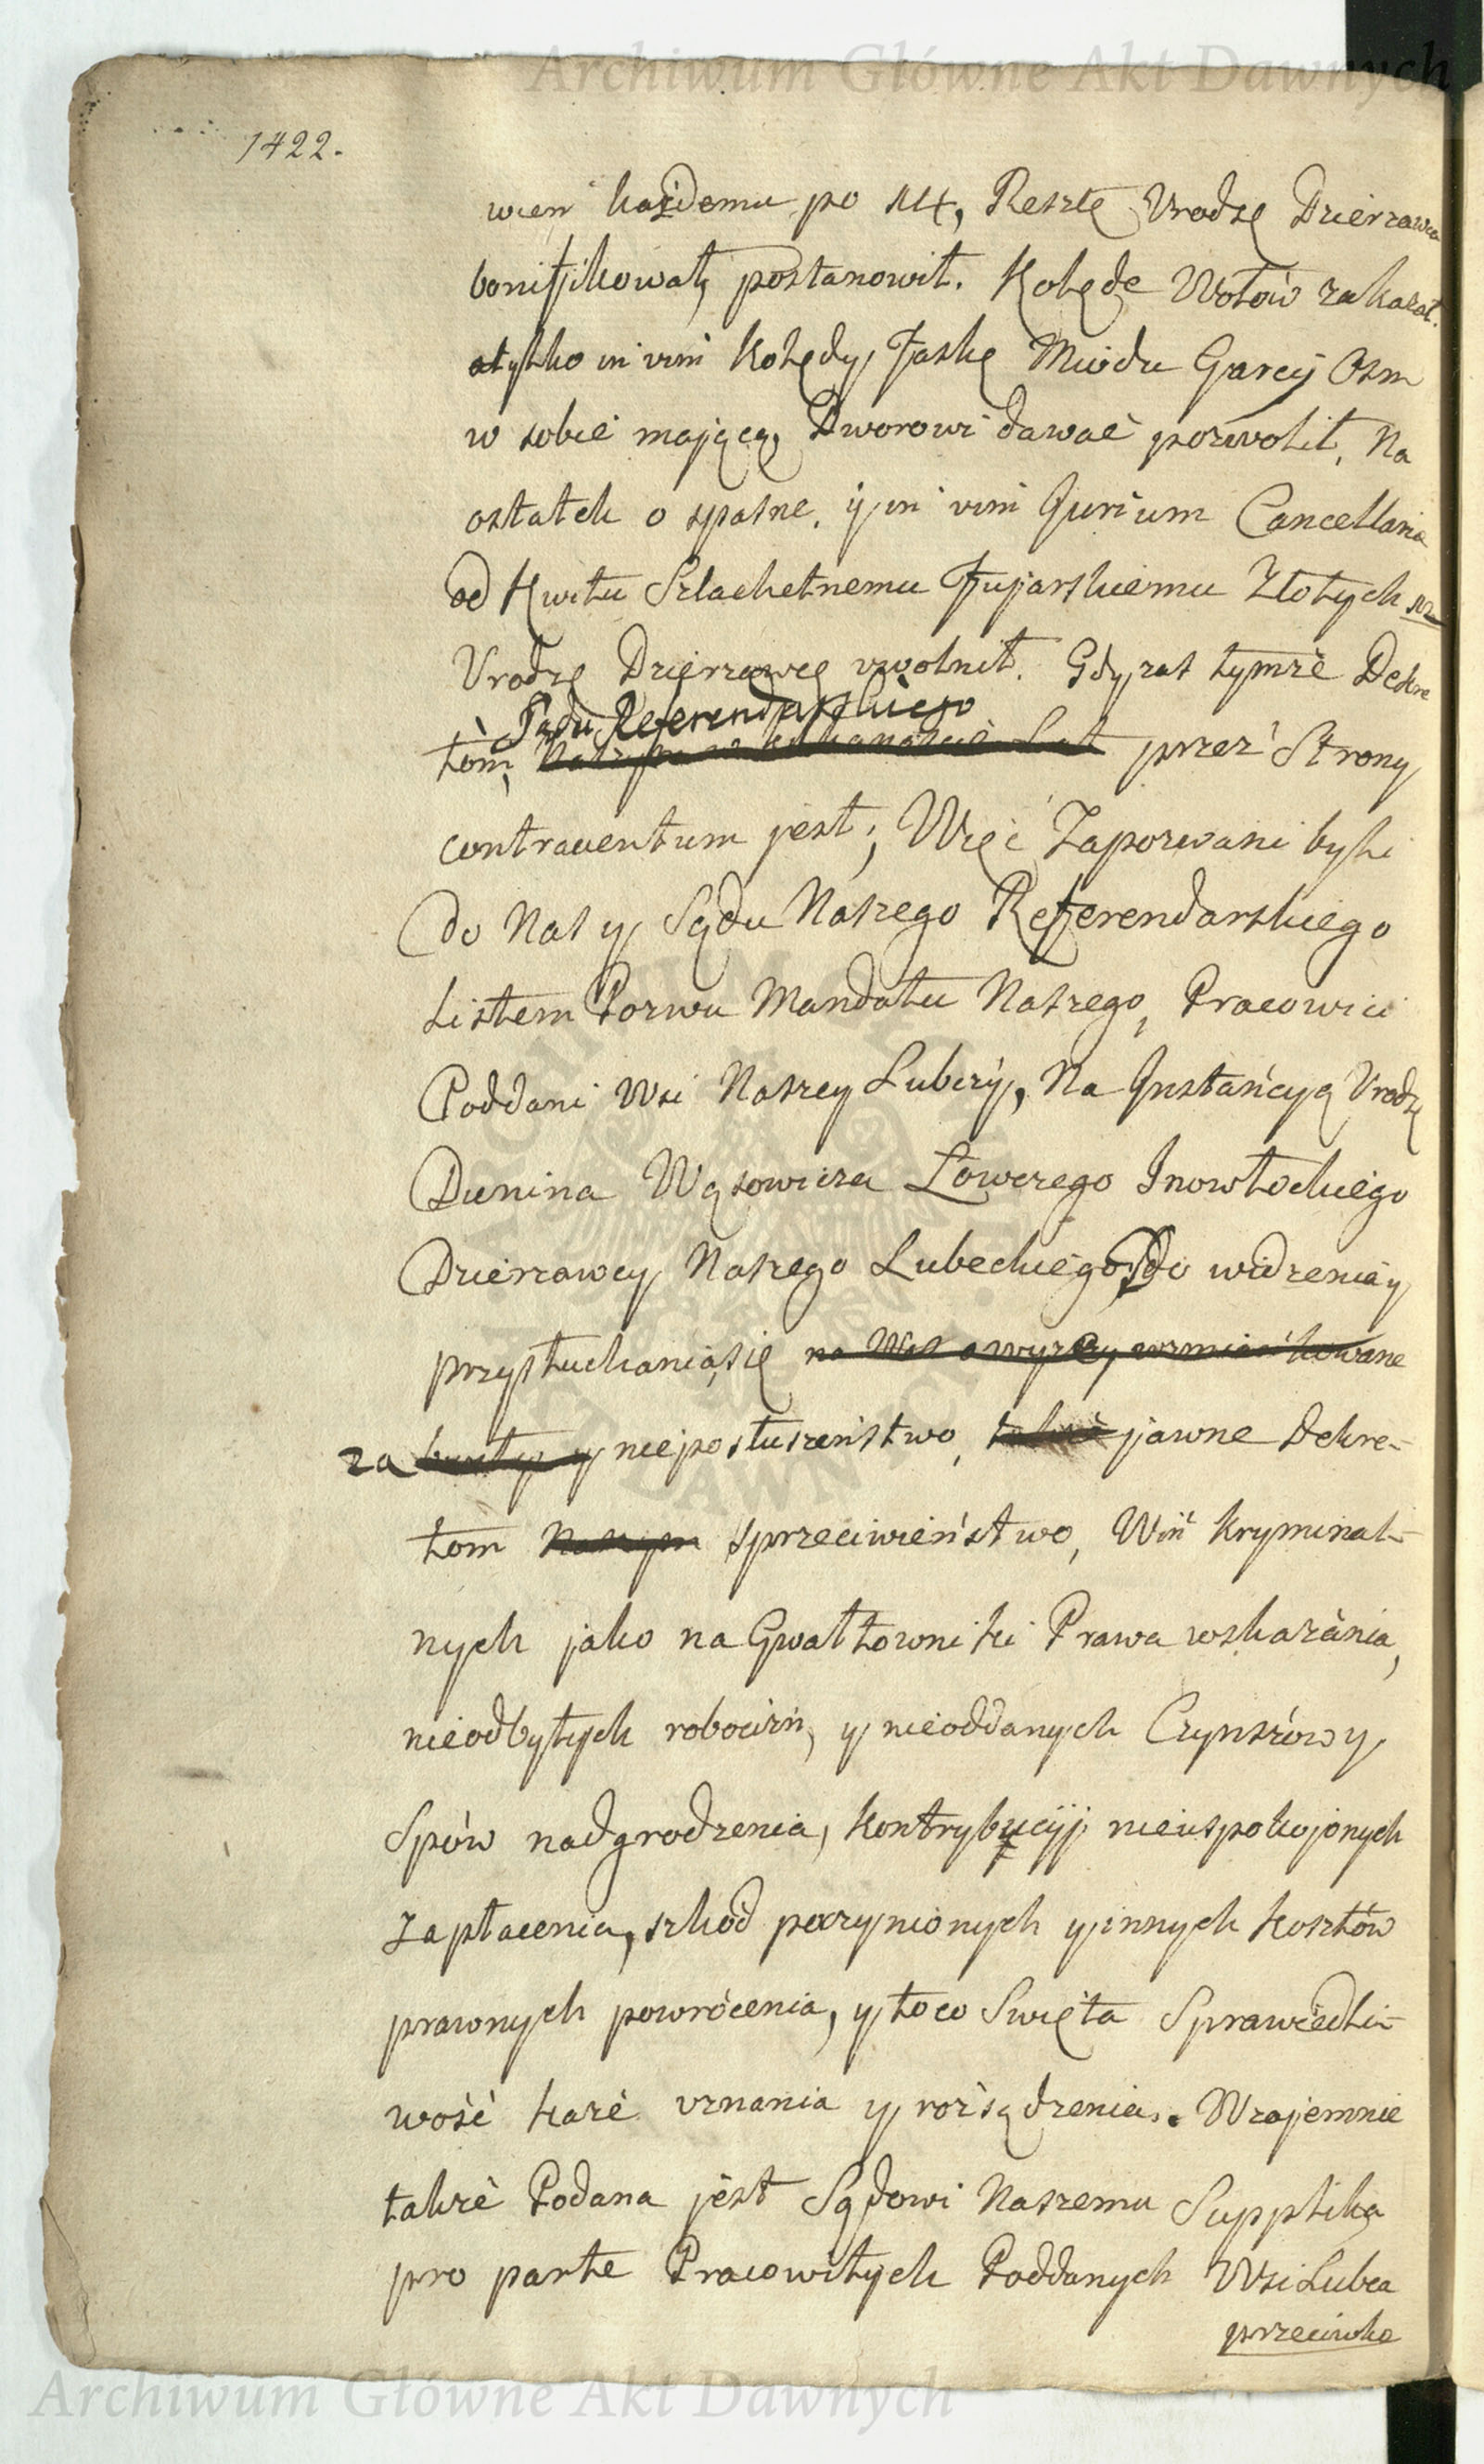 Archiwum Główne Akt Dawnych
1422.
wien każdemu po 14, Resztę Vrodzę Dzierzawca
bonifikować postanowił. Kolędę Wołów zakazał.
a tylko in vim Kolędy, Faskę Miodu Garcy Osm
w sobie mającą, Dworowi dawać pozwolił, Na
ostatek o spaśne, y in vim Jurium Cancellaria
od Kwitu Szlachetnemu Fujarskiemu Złotych
Vrodzę Dzierzawcę vwolnił. Gdy zaś tymże Dekre
Sądu Referendarskiego
tom, przez Strony
contraventum jest; Więc Zapozwani byli
Do Nas y Sądu Naszego Referendarskiego
Listem Pozwu Mandatu Naszego, Pracowici
Poddani Wsi Naszey Lubczy, Na Jnstancyą Vrodzę
Dunina Wąsowicza Łowczego Jnowłockiego
Dzierzawcy Naszego Lubeckiego, do widzenia y
przysłuchania się na Was o wyzey wzmiankowane
za bunty y nieposłuszeństwo, także jawne Dekre-
tom Naszym sprzeciwieństwo, Win Kryminal-
nych jako na Gwałtowniki Prawa wskazania,
nieodbytych robocizn, y nieoddanych Czynszów y
Sepów nadgrodzenia, Kontrybucyj nieuspokojonych
Zapłacenia, szkod poczynionych y innych Kosztów
prawnych powrócenia, y to co Swięta Sprawiedli-
wość każe vznania y rozsądzenia. Wzajemnie
także Podana jest Sądowi Naszemu Supplika
pro parte Pracowitych Poddanych Wsi Lubca
przeciwko
Archiwum Główne Akt Dawnych